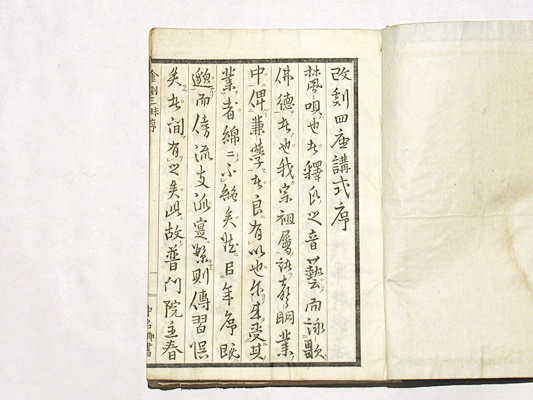 改刻四座講式序
梵唄也者釋氏之音藝而詠歌
佛德者也我宗祖屬諸聲明業
中俾兼學者良有以也尓来受其
業者綿々不絶矣然年序既
邈而傍流支派寔繁則傳習
矣者間有之矣此故普門院主春